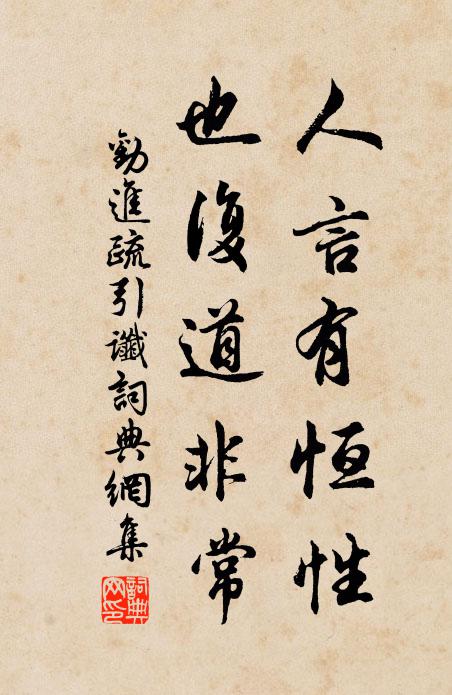 人言有恆性
也復道非常
勸進疏引讖詞典網集
詞典網印